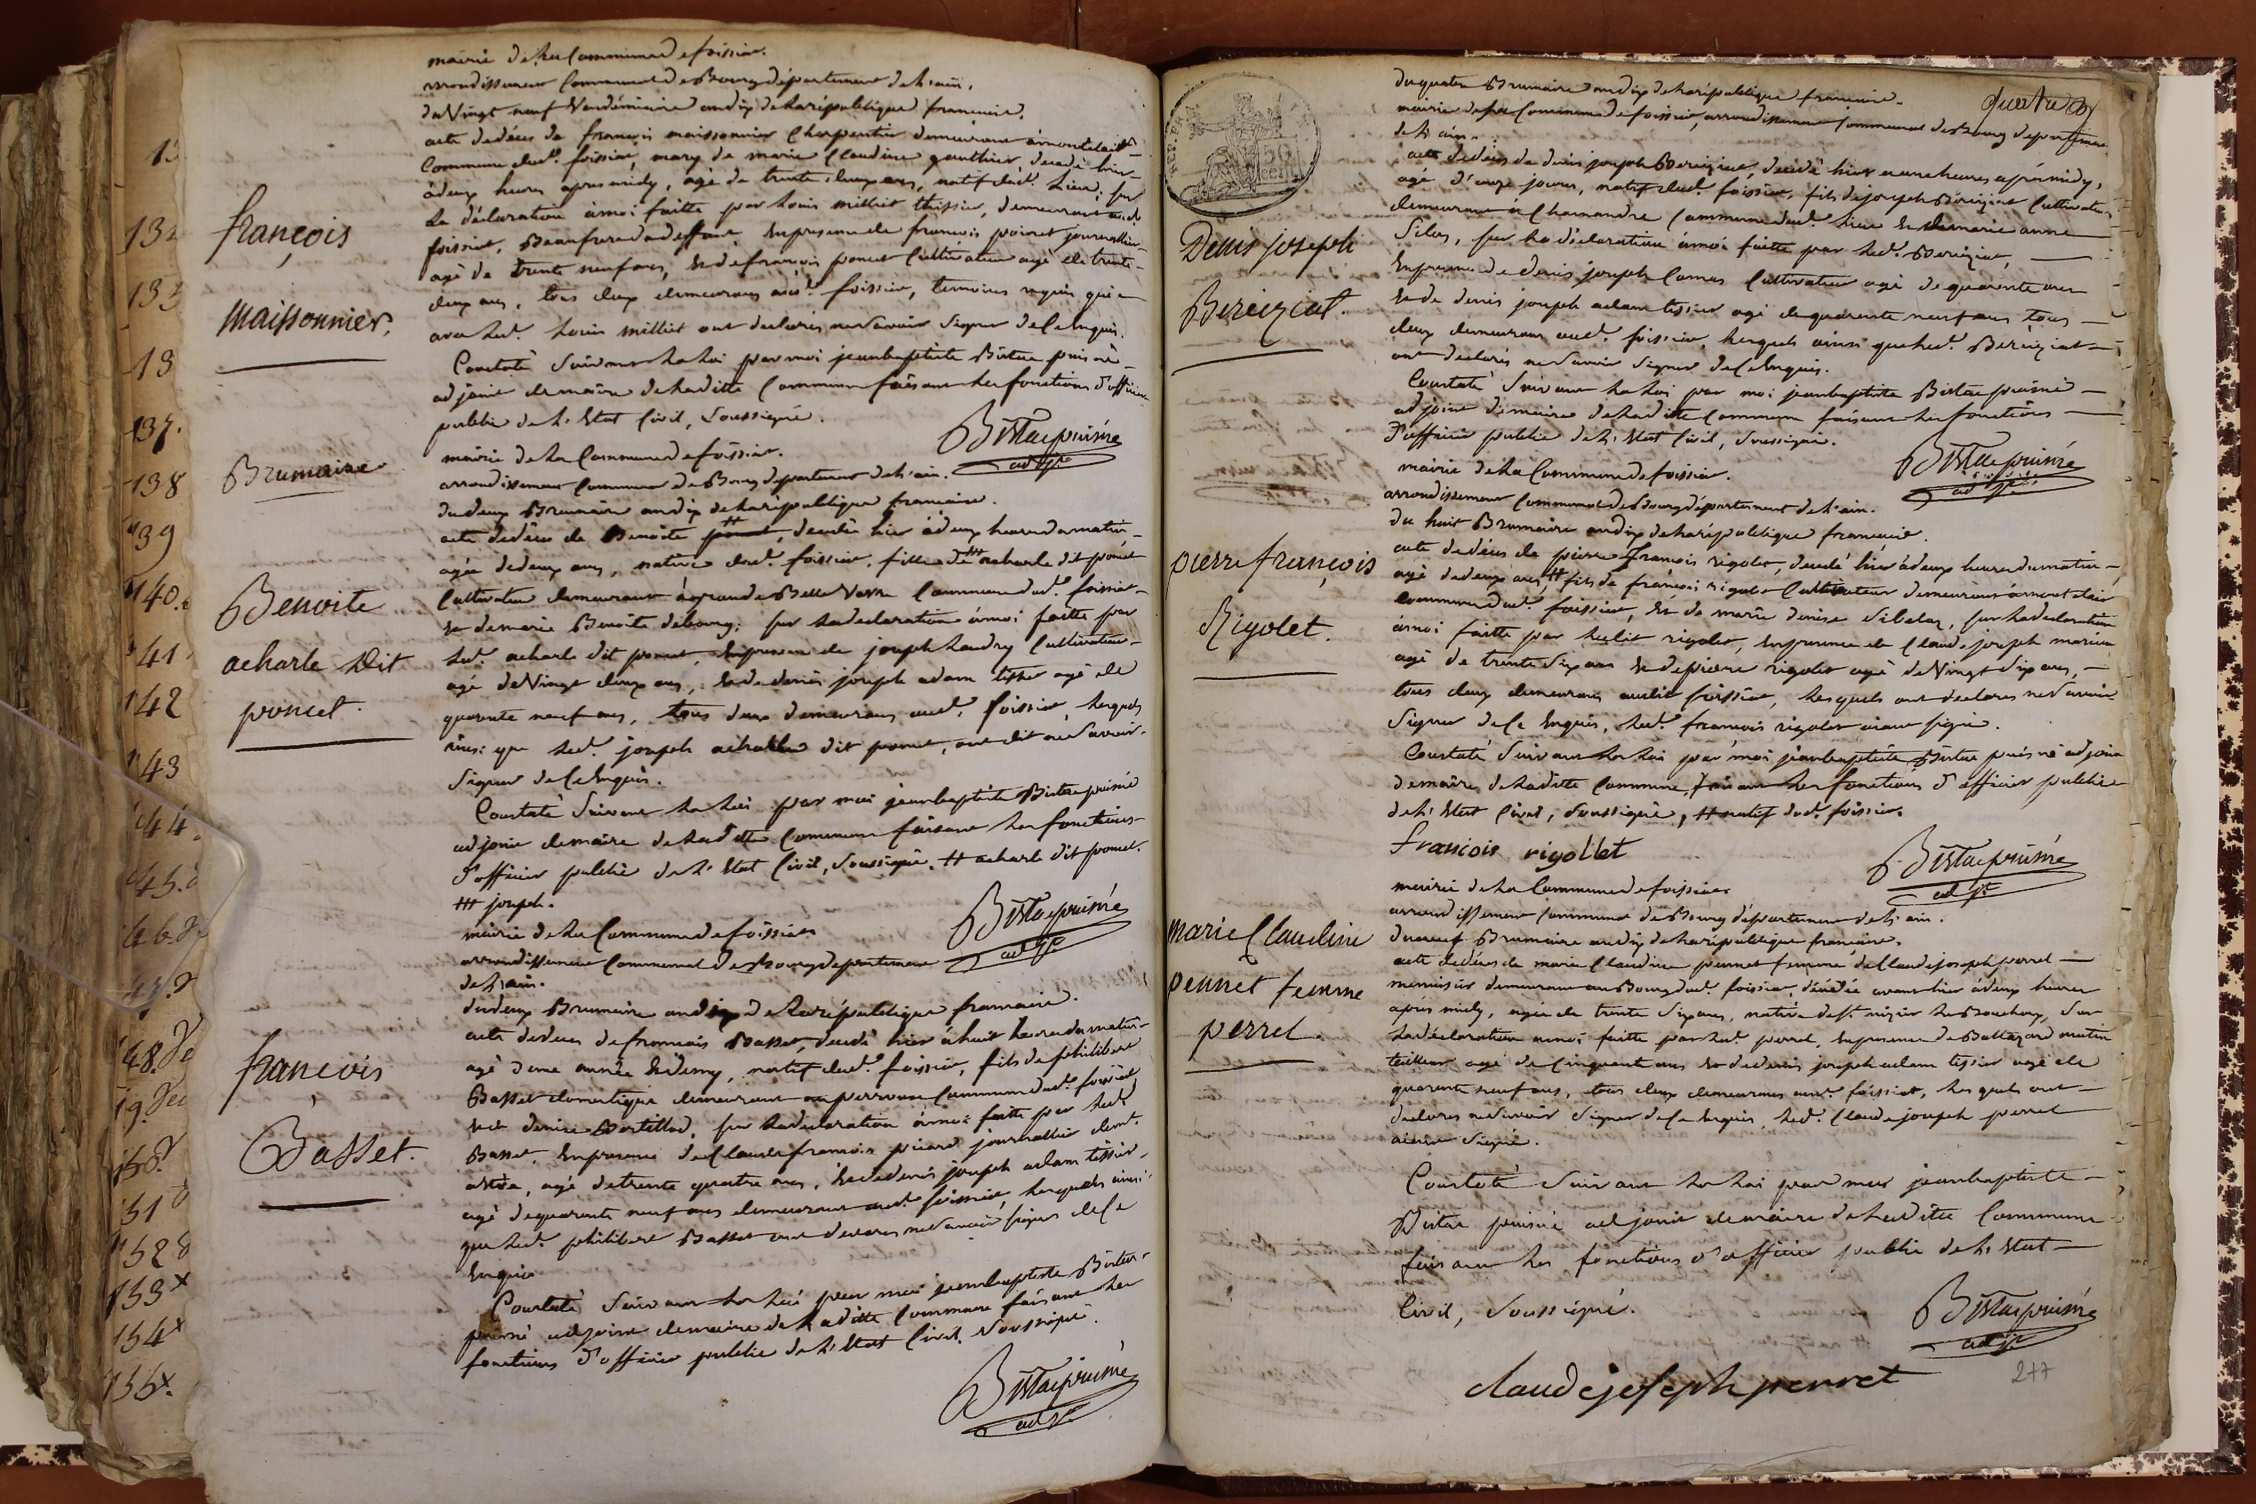 mairie de la Commune de foissiat.
arrondissement Communal de Bourg département de l'ain.
du Vingt neuf Vendémiaire an dix de la république francaise.
acte de décès de francois maissonnier Charpentier demeurant à montclair
Commune dud.t foissiat, mary de marie Claudine gauthier decedé hier
à deux heures apres midy, agé de trente deux ans, natif dud.t lieu; sur
la déclaration à moi faitte par louis milliet tissier, demeurant aud.t
foissiat, Beaufrere du deffunt, En presence de francois poncet journallier
agé de trente neuf ans, Et de francois poncet Cultivateur agé de trente
deux ans, tous deux demeurans aud.t foissiat, temoins requis qui
avec led.t louis milliet ont declarés ne Savoir Signer de Ce Enquis.
Constaté Suivant la loi par moi jeanbaptiste Bistac puisné
adjoint de maire de la ditte Commune faisant les fonctions d'officier
public de l'Etat Civil, Soussigné.
françois
maissonnier.
Bistac puisné
adj.t
Brumaire
mairie de la Commune de foissiat.
arrondissement Communal de Bourg département de l'ain.
du deux Brumaire an dix de la république francaise.
acte de décès de Benoite ++, decedée hier à deux heures du matin
agée de deux ans, native dud.t foissiat, fille de +++ acharle dit poncet
Cultivateur demeurant à grande Belle Commune dud.t foissiat
Et de marie Benoite debourg; sur la declaration à moi faitte par
led.t acharle dit poncet, En presence de joseph landry Cultivateur
agé de Vingt deux ans, Et de denis joseph adam tissier agé de
quarente neuf ans, tous deux demeurans aud.t foissiat, lesquels
ainsi que led.t joseph acharle dit poncet, ont dit ne Savoir
Signer de Ce Enquis.
Constaté Suivant la loi par moi jeanbaptiste Bistac puisné
adjoint de maire de la ditte Commune faisant les fonctions
d'officier public de l'Etat Civil, Soussigné. ++ acharle dit poncet.
+++ joseph.
Benoite
acharle Dit
poncet.
Bistac puisné
adj.t
mairie de la Commune de foissiat
arrondissement Communal de Bourg département
de l'ain.
du deux Brumaire an dix de la république francaise.
acte de décès de francois Basset, decedé hier à huit heures du matin
agé d'une année Et demy, natif dud.t foissiat, fils de philibert
Basset domestique demeurant au Commune dud.t foissiat
Et de denise, sur la declaration à moi faitte par led.t
Basset, En presence de Claude francois picard journallier dem.t
agé de trente quatre ans, Et de denis joseph adam tissier
agé de quarente neuf ans demeurant aud.t foissiat, lesquels ainsi
que led.t philibert Basset ont declarés ne Savoir Signer de Ce
Enquis
Constaté Suivant la loi par moi jeanbaptiste Bistac
puisné adjoint de maire de la ditte Commune faisant les
fonctions d'officier public de l'Etat Civil Soussigné.
francois
Basset.
Bistac puisné
adj.t
13
132
133
13
137.
138
139
140.
141
142
143
144
145.
146.
147.
148.
19.
150.
151
152
153x
154x
155x.
du quatre Brumaire an dix de la république francaise.
mairie de la Commune de foissiat, arrondissement Communal de Bourg departement
de l'ain.
acte de décès de denis joseph Bereiziat, decedé hier a onze heures après midy,
agé d'onze jours, natif dud.t foissiat, fils de joseph Béréiziat Cultivateur
demeurant à Charnandre Commune dud.t lieu Et de marie anne
Silas, sur la déclaration à moi faitte par led.t Bereiziat,
En presence de denis joseph Camus Cultivateur agé de quarente ans
Et de denis joseph adam tissier agé de quarente neuf ans, tous
deux demeurans aud.t foissiat, lesquels ainsi que led.t Bereiziat
ont declarés ne Savoir Signer de Ce Enquis.
Constaté Suivant la loi par moi jeanbaptiste Bistac puisné
adjoint de maire de la ditte Commune faisant les fonctions
d'officier public de l'Etat Civil, Soussigné.
Denis joseph
Bereiziat.
Bistac puisné
adj.t
mairie de la Commune de foissiat.
arrondissement Communal de Bourg département de l'ain.
du huit Brumaire an dix de la république francaise.
acte de décès de pierre francois rigolet, decedé hier à deux heures du matin
agé de deux ans, ++ fils de francois rigolet Cultivateur demeurant à montclair
Commune dud.t foissiat, Et de marie denise Sibelas, sur la declaration
à moi faitte par ledit rigolet, En presence de Claude joseph
agé de trente Six ans Et de pierre rigolet agé de Vingt Six ans,
tous deux demeurans audit foissiat, lesquels ont declarés ne Savoir
Signer de Ce Enquis, led.t francois rigolet aiant signé.
Constaté Suivant la loi par moi jeanbaptiste Bistac puisné adjoint
de maire de la ditte Commune, faisant les fonctions d'officier public
de l'Etat Civil, Soussigné, ++ natif dud.t foissiat.
pierre françois
Rigolet.
francois rigollet
Bistac puisné
adj.t
mairie de la Commune de foissiat
arrondissement Communal de Bourg département de l'ain.
du neuf Brumaire an dix de la république francaise.
acte de décès de marie Claudine pennet femme de Claude joseph perret
menuisier demeurant au Bourg dud.t foissiat, décédée avant hier à deux heures
après midy, agée de trente Six ans, native de St nizier le Bouchoux, Sur
la déclaration à moi faitte par led.t perret, En presence de Baltazard mutin
tailleur agé de Cinquante ans Et de denis joseph adam tissier agé de
quarente neuf ans, tous deux demeurans aud.t foissiat, lesquels ont
declarés ne Savoir Signer de Ce Enquis, led.t Claude joseph perret
aiant Signé.
Constaté Suivant la loi par moi jeanbaptiste
Bistac puisné adjoint de maire de la ditte Commune
faisant les fonctions d'officier public de l'Etat
Civil, Soussigné.
marie Claudine
pennet femme
perret.
Bistac puisné
adj.t
claude joseph perret
247